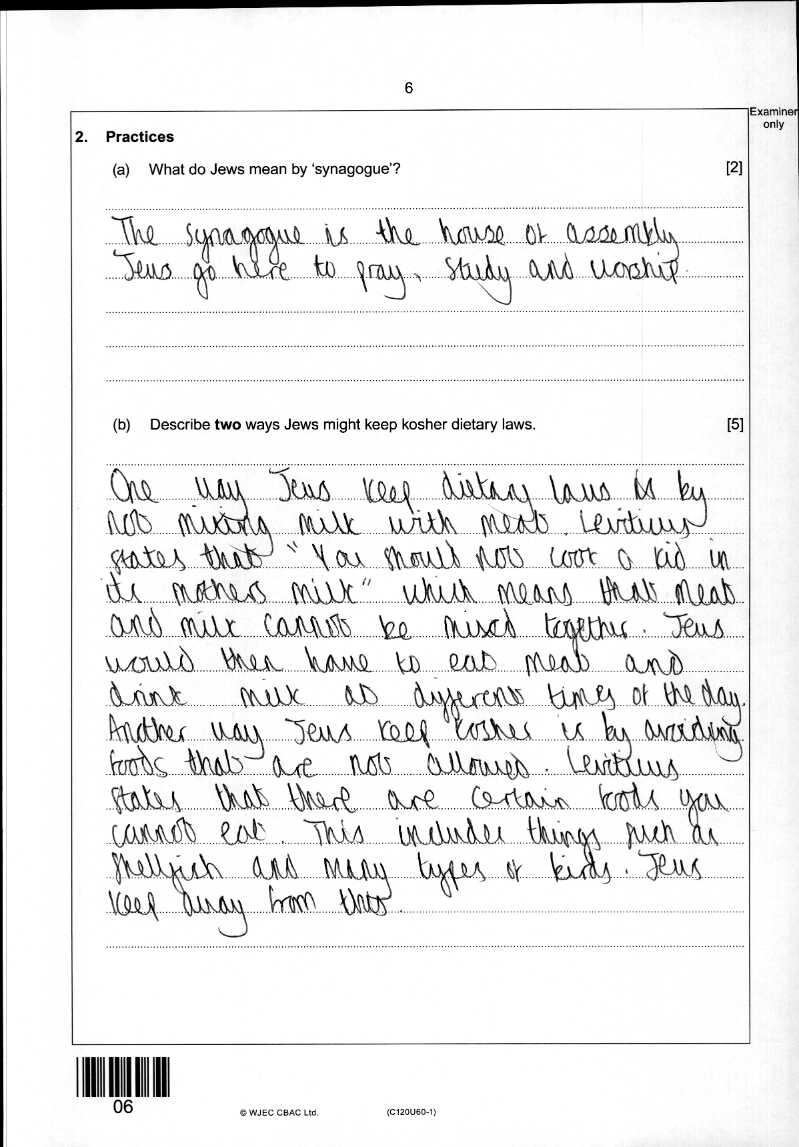 6
Examiner
only
2. Practices
(a) What do Jews mean by 'synagogue'? [2]
The synagogue is the house of assembly
Jews go here to pray, study and worship.
(b) Describe two ways Jews might keep kosher dietary laws. [5]
One way Jews keep dietary laws is by
not mixing milk with meat. Leviticus
states that "You should not cook a kid in
its mothers milk" which means that meat
and milk cannot be mixed together. Jews
would then have to eat meat and
drink milk at different times of the day.
Another way Jews keep kosher is by avoiding
foods that are not allowed. Leviticus
states that there are certain foods you
cannot eat. This includes things such as
shellfish and many types of birds. Jews
keep away from this.
06
© WJEC CBAC Ltd. (C120U60-1)